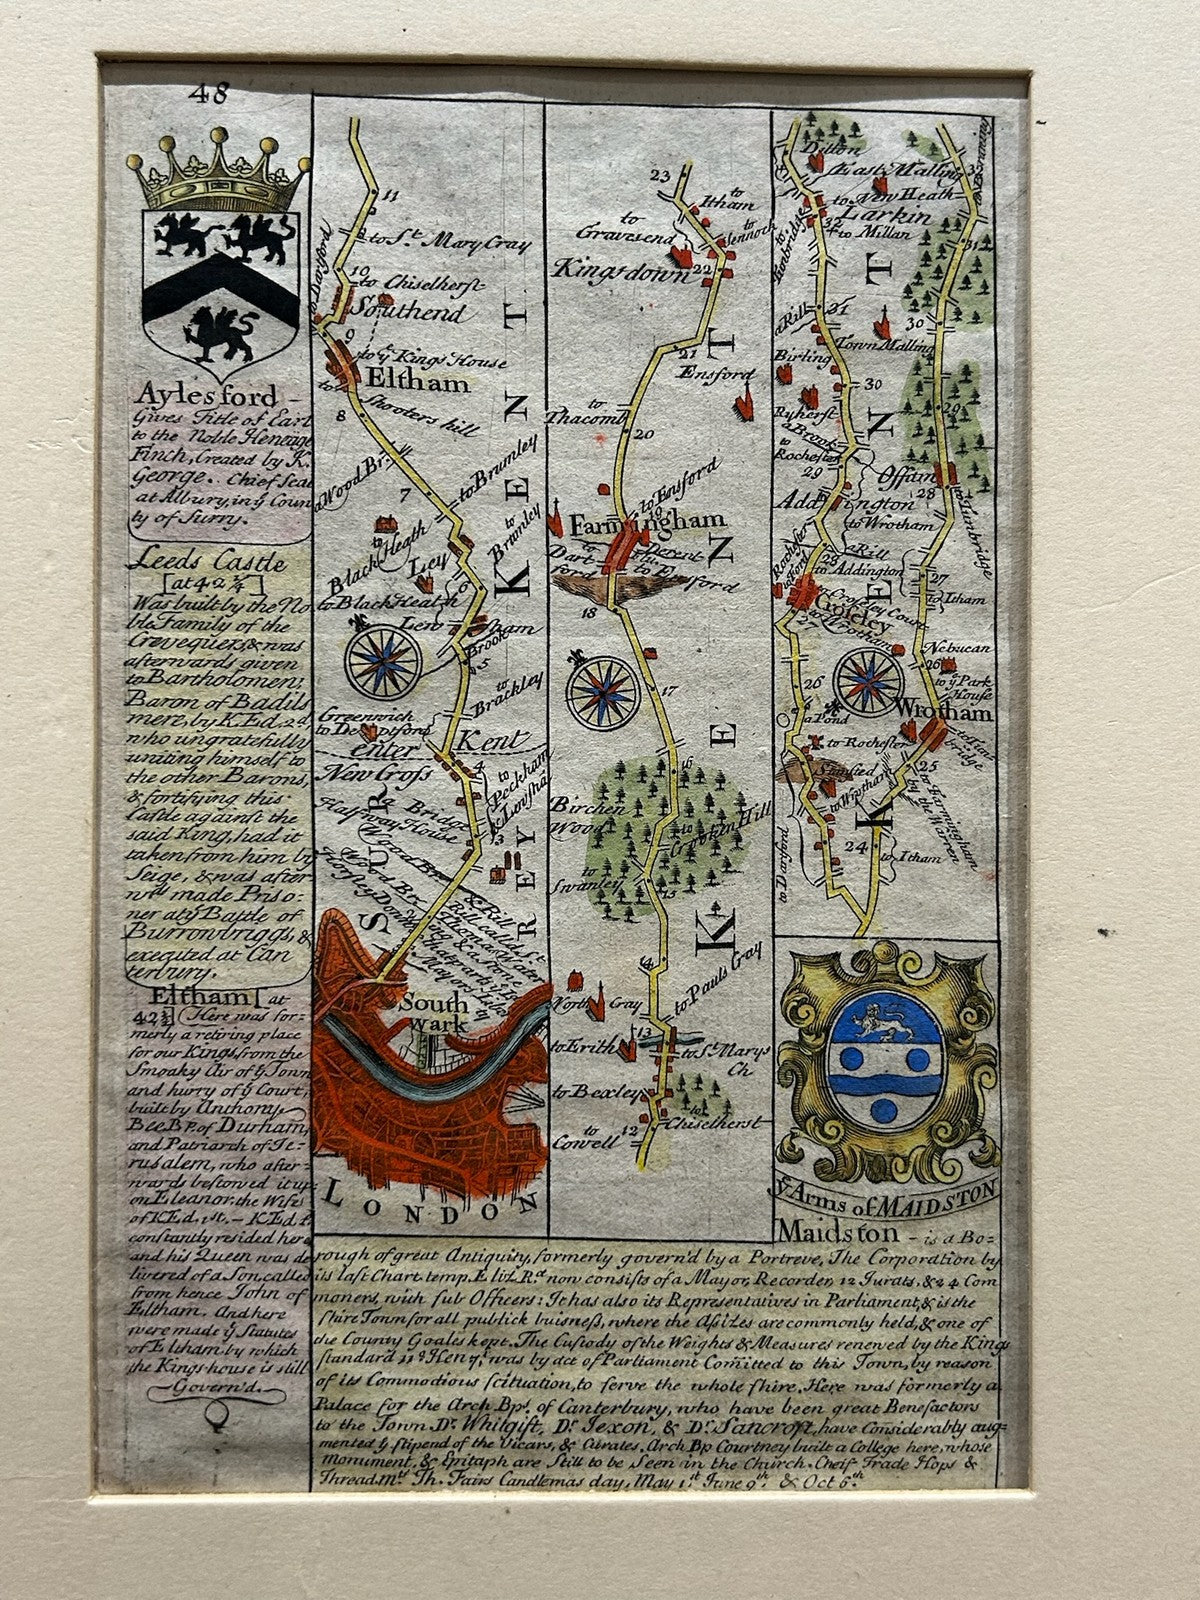 48
Aylesford -
Gives Title of Earl
to the Noble Heneage
Finch, Created by K.
George. Chief Seat
at Albury, in yͤ Coun
ty of Surry.
Leeds Castle
[at 42 ¼]
Was built by the No
ble Family of the
Crevequers, & was
afterwards given
to Bartholomew,
Baron of Badils
mere, by K. Ed. 2d,
who ungratefully
uniting himself to
the other Barons,
& fortifying this
Castle against the
said King, had it
taken from him by
Seige, & was after
wds made Priso:
ner at yͤ Battle of
Burrowbriggs, &
executed at Can
terbury.
Eltham [at
Here was for:
merly a retiring place
for our Kings, from the
Smoaky Air of yͤ Town
and hurry of yͤ Court,
built by Anthony
Bee Bp. of Durham
and Patriarch of Je:
rusalem, who after:
wards bestowed it up
on Eleanor, the Wife
of K Ed. 1st. - K Ed.
constantly resided here
and his Queen was de
livered of a Son, called
from hence John of
Eltham. And here
were made yͤ Statutes
of Eltham, by which
the Kings house is still
Govern'd.
11
to St Mary Cray
10
to Chiselherst
to Dartford
Southend
9
to yͤ Kings House
Eltham
to
Shooters hill
8
a Wood Br.
7
to Brumley
to
Black Heath
to
Brumley
Ley
6
to Black Heath
Lewsham
Brook
5
to
Brackley
Greenwich
to Deptford
enter Kent
New Cross
4
to
Peckham
& Lewsham
a Bridge
Halfway House
3
a Wood Br. & Rill
KENT
SURREY
South
wark
LONDON
23
to
Itham
to
Gravesend
to
Sennock
Kingsdown
22
21
Ensford
to
Thacomb
20
to Ensford
19
Farmingham
to
Dart
ford
Derent
flu.
to Ensford
18
17
16
Birchen
Wood
to
Crocken Hill
to
Swanley
15
to Pauls Cray
North Cray
13
to Erith
to St Marys
Ch
to Bexley
to
Chiselherst
12
to
Cowell
KENT
Ditton
East Malling
to New Heath
Larkin
32
to Millan
to Tunbridge
a Rill
31
Town Malling
Birling
30
Ryherst
a Brook
to
Rochester
29
Addington
to Wrotham
a Rill
28
to Addington
to Croseley Court
Croseley
to Wrotham
27
26
a Pond
to Rochester
Stansted
to Wrotham
to Dartford
24
to Itham
32
31
30
29
Offam
28
to Tunbridge
27
to Itham
Nebucan
26
to yͤ Park
House
Wrotham
to Tun
bridge
25
to Farmingham
by the Warren
KENT
yͤ Arms of MAIDSTON
Maidston - is a Bo=
rough of great Antiquity, formerly govern'd by a Portreve, The Corporation by
its last Chart. temp. Eliz. Rd. now consists of a Mayor, Recorder, 12 Jurats, & 24 Com
moners, with sub Officers: It has also its Representatives in Parliament, & is the
shire Town for all publick buisness, where the Assizes are commonly held, & one of
the County Goales kept. The Custody of the Weights & Measures renewed by the Kings
standard 11o Hen 7, was by act of Parliament Comitted to this Town, by reason
of its Commodious scituation, to serve the whole shire. Here was formerly a
Palace for the Arch Bps. of Canterbury, who have been great Benefactors
to the Town Dr. Whitgift, Dr. Jexon, & Dr. Sancroft, have Considerably aug=
mented yͤ stipend of the Vicars, & Curates. Arch Bp Courtney built a College here, whose
monument, & Epitaph are Still to be Seen in the Church. Cheif Trade Hops &
Thread. mtt Th. Fairs Candlemas day, May 1st. June 9th & Oct 6th